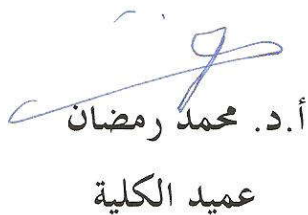 أ.د. محمد رمضان
عميد الكلية